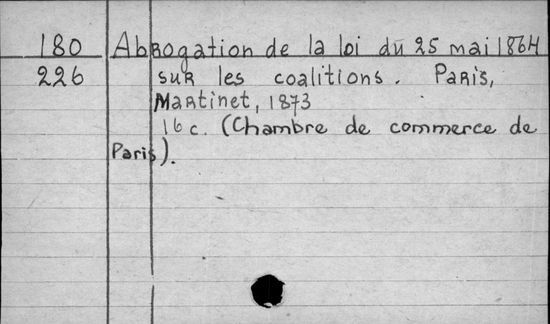 180 Abrogation de la loi du 25 mai 1864
226 sur les coalitions. Paris,
Martinet, 1873
16 c. (Chambre de commerce de
Paris).